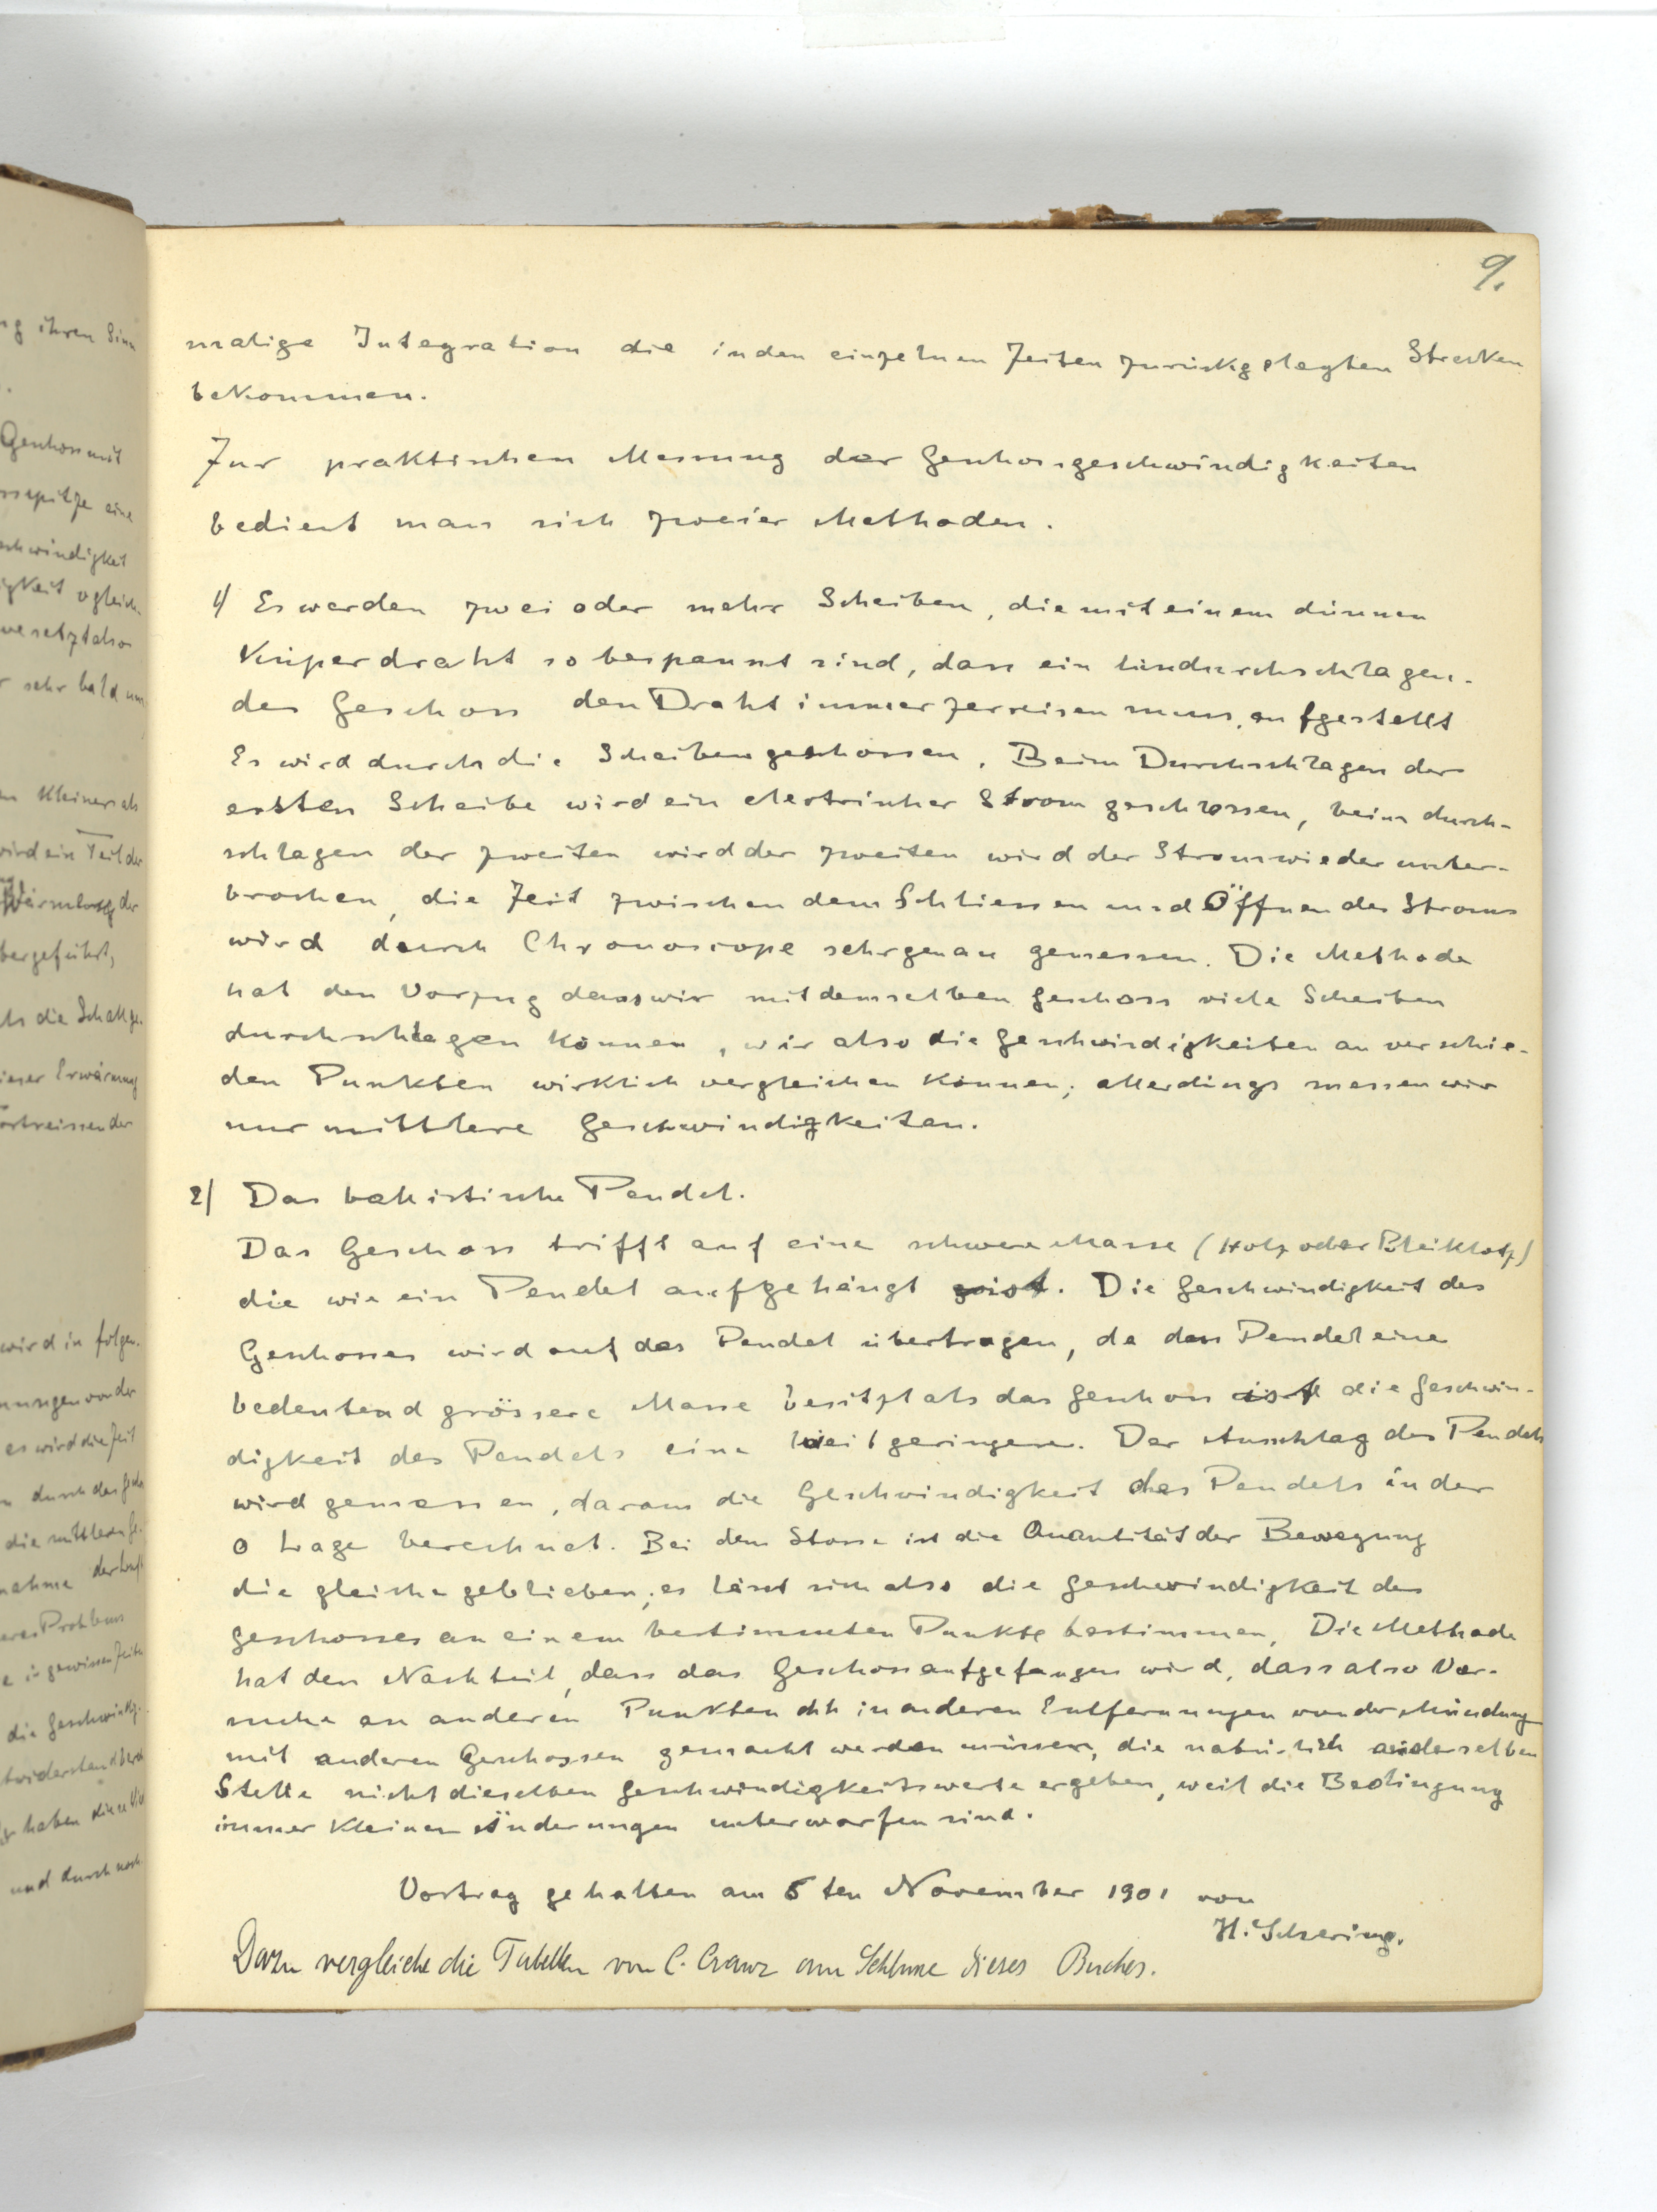 9.
malige Integration die in den einzelnen Zeiten zurückgelegten Strecken
bekommen.
Zur praktischen Messung der Geschossgeschwindigkeiten
bedient man sich zweier Methoden.
1) Es werden zwei oder mehr Scheiben, die mit einem dünnen
Kupferdraht so bespannt sind, dass ein hindurchschlagen-
des Geschoss den Draht immer zerreisen muss, aufgestellt
Es wird durch die Scheiben geschossen. Beim Durchschlagen der
ersten Scheibe wird ein electrischer Strom geschlossen, beim durch-
schlagen der zweiten wird der zweiten wird der Strom wieder unter-
brochen, die Zeit zwischen dem Schliessen und Öffnen des Stroms
wird durch Chronoscope sehr genau gemessen. Die Methode
hat den Vorzug dass wir mit demselben Geschoss viele Scheiben
durchschlagen können, wir also die Geschwindigkeiten an verschie-
den Punkten wirklich vergleichen können; allerdings messen wir
nur mittlere Geschwindigkeiten.
2) Das balistische Pendel.
Das Geschoss trifft auf eine schwere Masse (Holz oder Bleiklotz)
die wie ein Pendel aufgehängt ist. Die Geschwindigkeit des
Geschosses wird auf das Pendel übertragen, da das Pendel eine
bedeutend grössere Masse besitzt als das Geschoss ist die Geschwin-
digkeit des Pendels eine weit geringere. Der Ausschlag des Pendels
wird gemessen, daraus die Geschwindigkeit des Pendels in der
0 Lage berechnet. Bei dem Stosse ist die Quantität der Bewegung
die gleiche geblieben, es lässt sich also die Geschwindigkeit des
Geschosses an einem bestimmten Punkte bestimmen, Die Methode
hat den Nachteil, dass das Geschoss aufgefangen wird, dass also Ver-
suche an anderen Punkten dh in anderen Entfernungen von der Mündung
mit anderen Geschossen gemacht werden müssen, die natürlich an derselben
Stelle nicht dieselben Geschwindigkeitswerte ergeben, weil die Bedingung
immer kleinen Änderungen unterworfen sind.
Vortrag gehalten am 5ten November 1901 von
H. Schering.
Dazu vergleiche die Tabellen von C. Cranz am Schlusse dieses Buches.